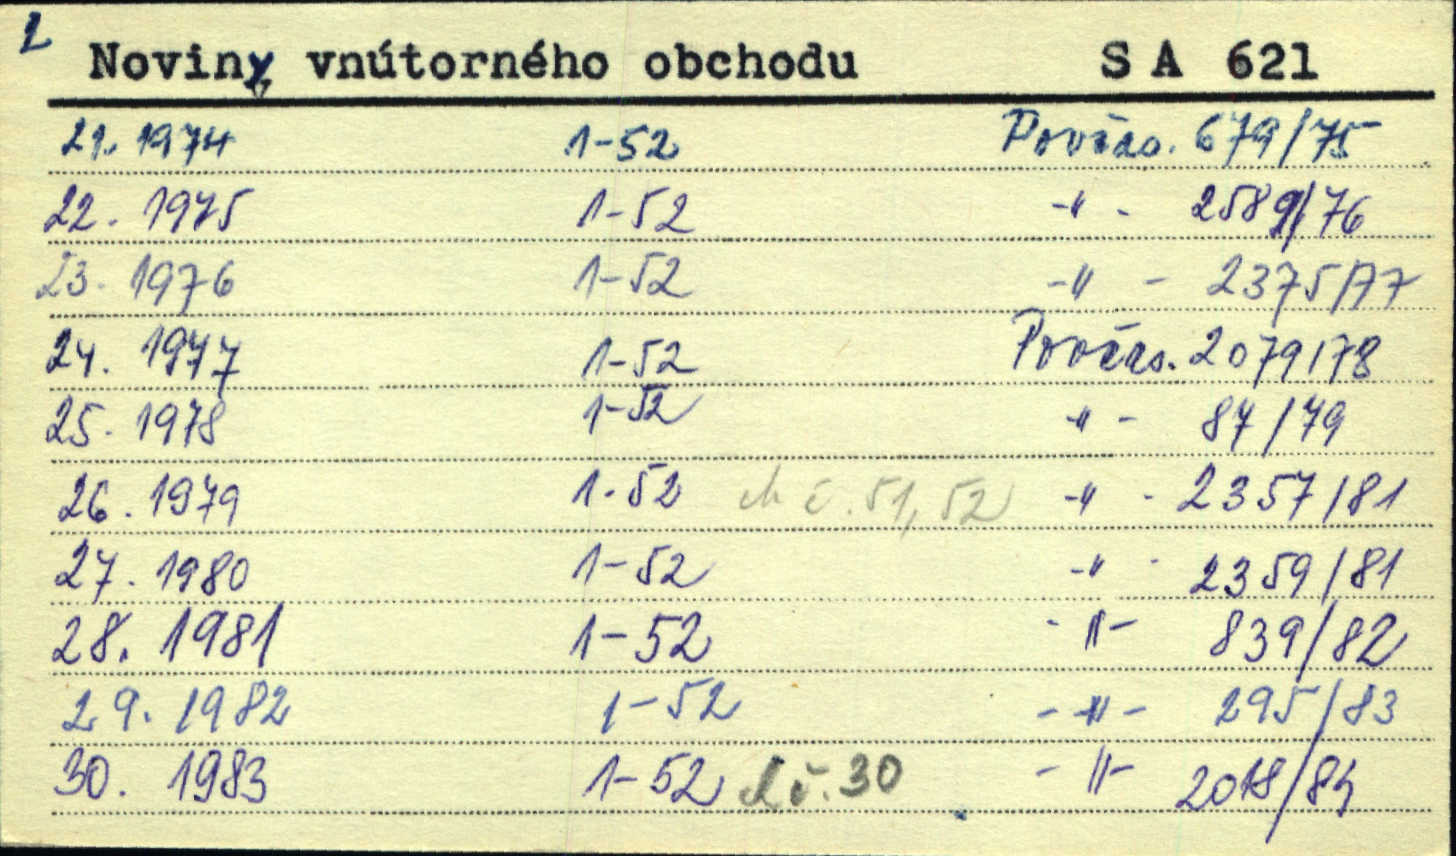 2
Noviny vnútorného obchodu S A 621
21. 1974 1-52 Povčas. 679/75
22. 1975 1-52 -"- 2589/76
23. 1976 1-52 -"- 2375/77
24. 1977 1-52 Povčas. 2079/78
25. 1978 1-52 "- 87/79
26. 1979 1-52 ch č. 51, 52 -"- 2357/81
27. 1980 1-52 -"- 2359/81
28. 1981 1-52 -"- 839/82
29. 1982 1-52 -"- 295/83
30. 1983 1-52 ch č. 30 -"- 2018/84